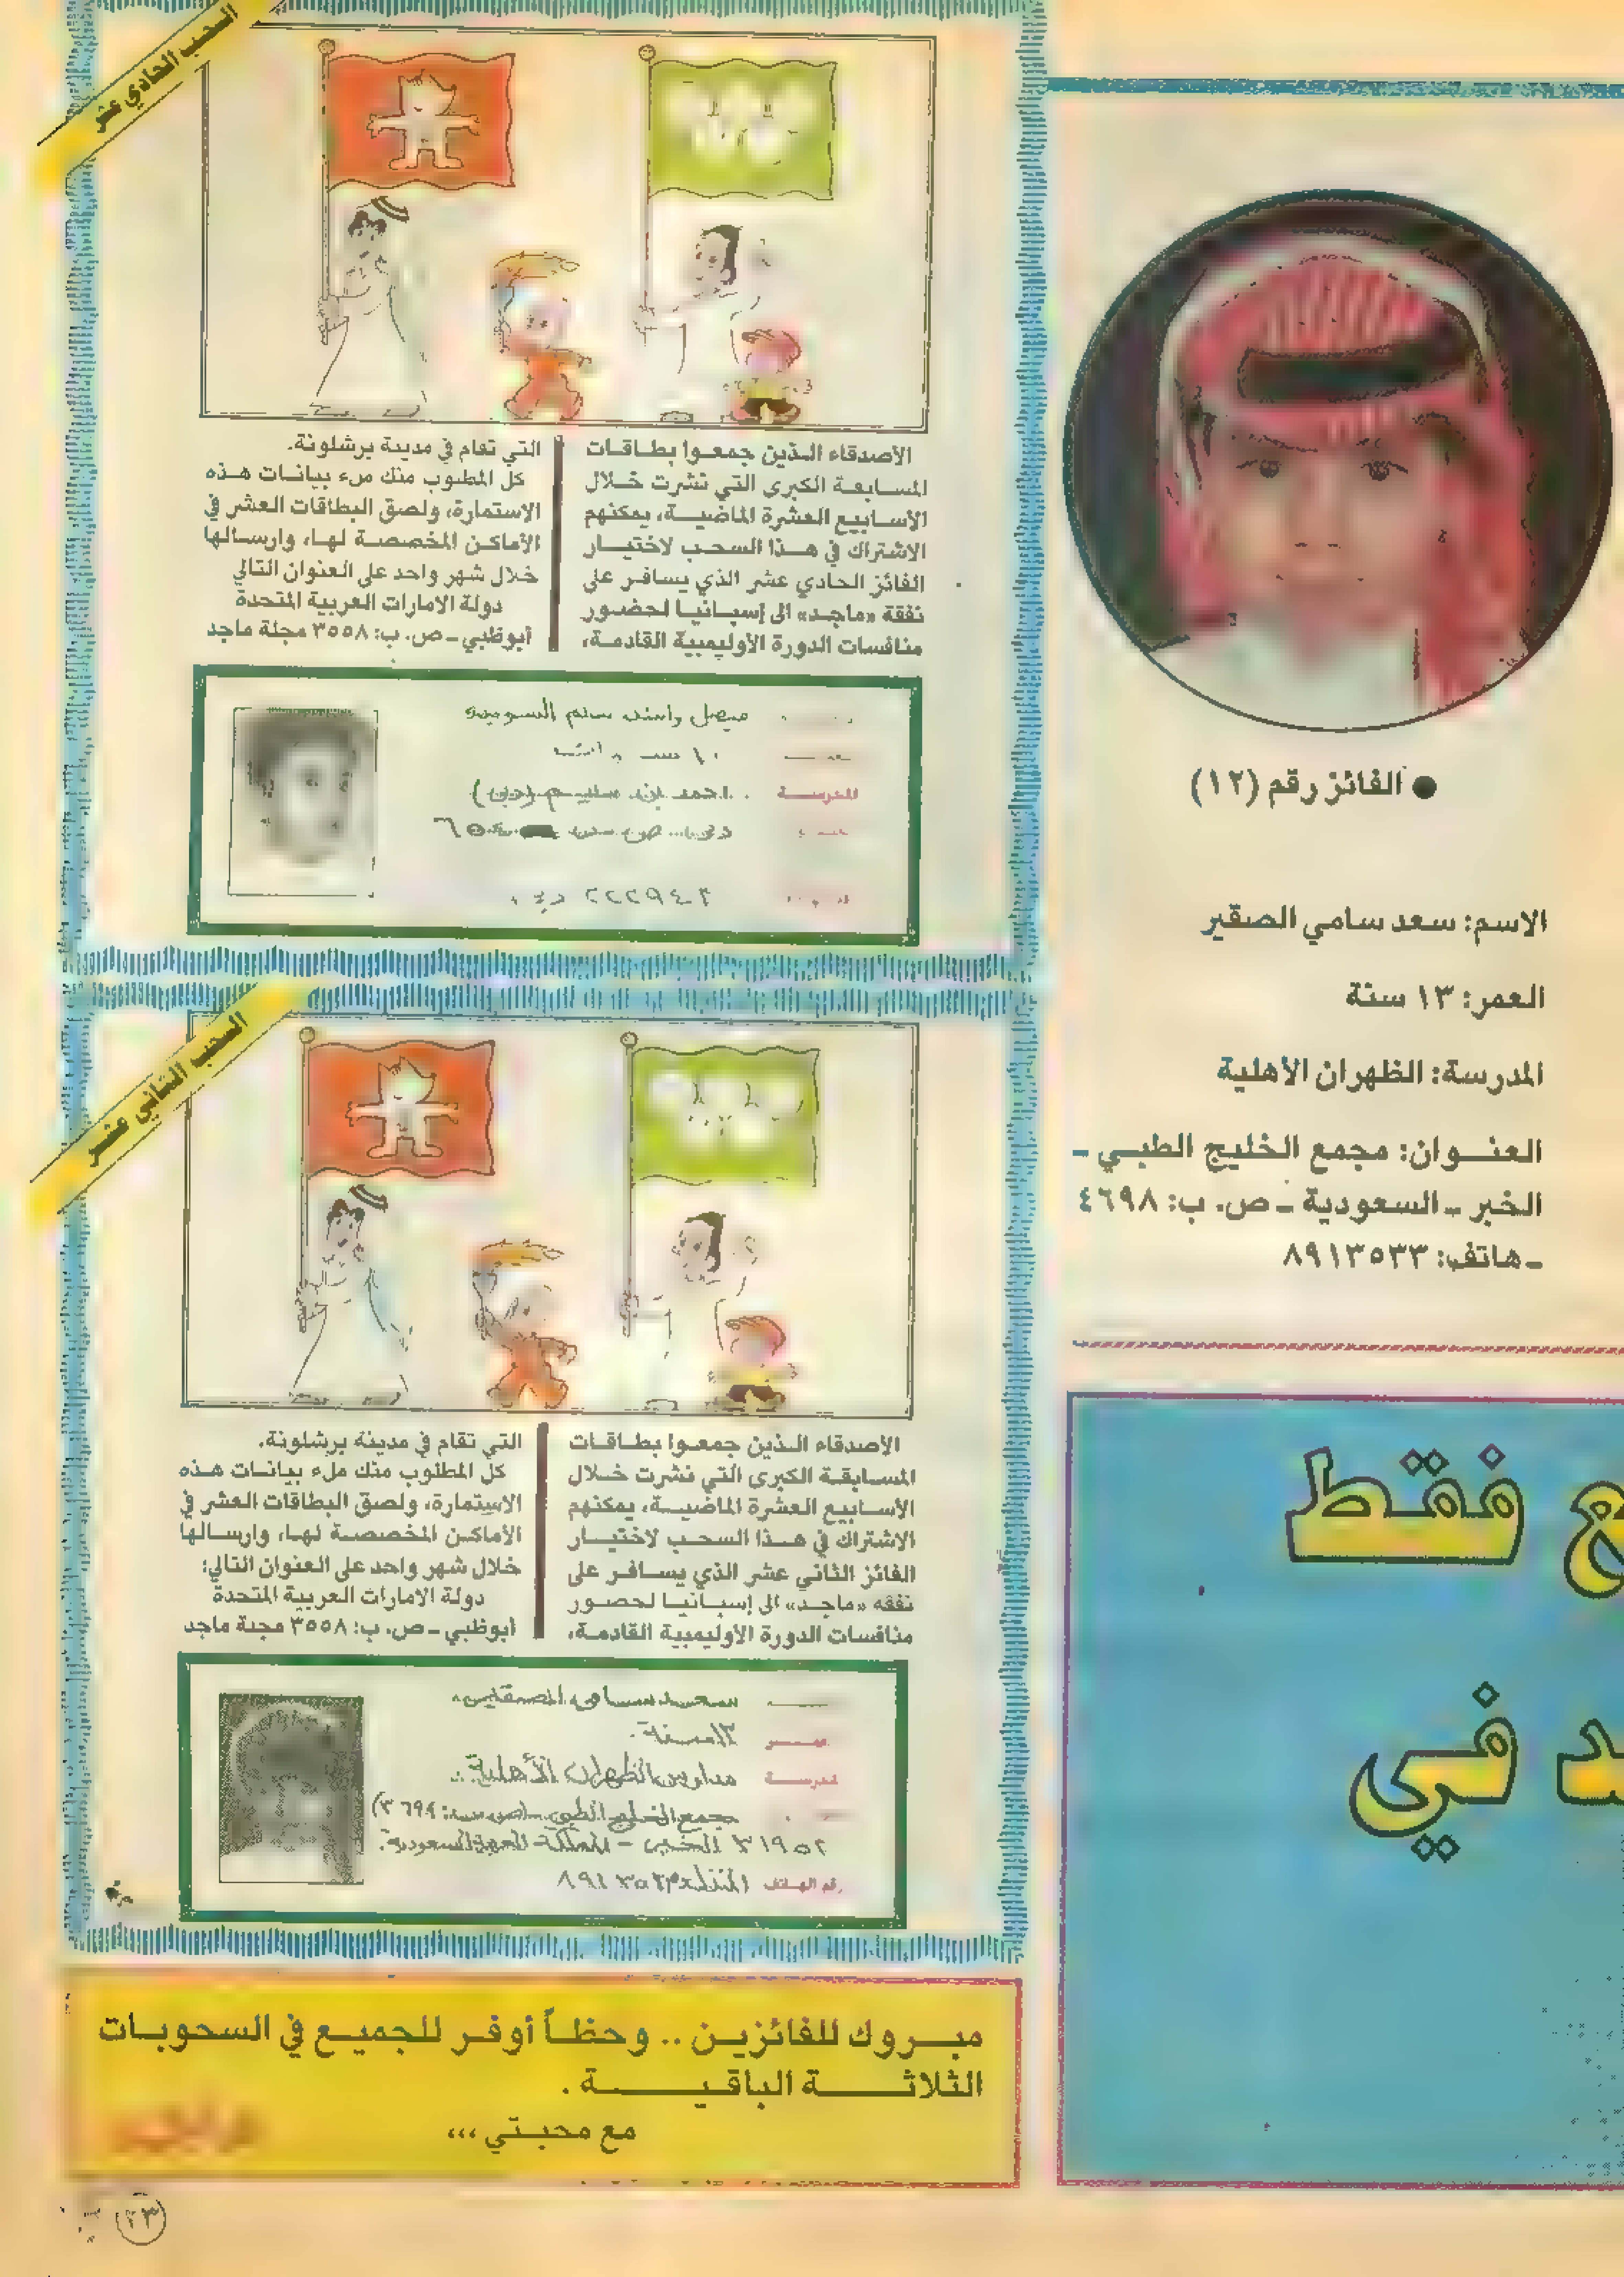 ● الفائز رقم (١٢)
الاسم: سعد سامي الصقير
العمر: ١٣ سنة
المدرسة: الظهران الأهلية
العنـوان: مجمع الخليج الطبـي ـ
الخبر ـ السعودية ـ ص. ب: ٤٦٩٨
ـ هاتف: ٨٩١٣٥٣٣
ع فقط
ـد في
السحب الحادي عشر
الأصدقاء الـذين جمعـوا بطـاقـات
المسـابقـة الكبرى التي نشرت خـلال
الأسـابيع العشرة الماضيـة، يمكنهم
الاشتراك في هـذا السحـب لاختيـار
الفائز الحادي عشر الذي يسافـر على
نفقة «ماجـد» الى إسبـانيـا لحضـور
منافسات الدورة الأوليمبية القادمـة،
التي تقام في مدينة برشلونة.
كل المطلوب منك ملء بيانـات هـذه
الاستمارة، ولصق البطاقات العشر في
الأماكـن المخصصـة لهـا، وارسـالها
خلال شهر واحد على العنوان التالي
دولة الامارات العربية المتحدة
أبوظبي ـ ص. ب: ٣٥٥٨ مجلة ماجد
راشد سالم
المدرسـة
٢٢٢٩٤٣
السحب الثاني عشر
الأصدقاء الـذين جمعـوا بطـاقـات
المسـابقـة الكبرى التي نشرت خـلال
الأسـابيع العشرة الماضيـة، يمكنهم
الاشتراك في هـذا السحـب لاختيـار
الفائز الثاني عشر الذي يسـافـر على
نفقه «ماجـد» الى إسبـانيـا لحضـور
منافسات الدورة الأوليمبية القادمـة،
التي تقام في مدينة برشلونة.
كل المطلوب منك ملء بيانـات هـذه
الاستمارة، ولصق البطاقات العشر في
الأماكـن المخصصـة لهـا، وارسـالها
خلال شهر واحد على العنوان التالي:
دولة الامارات العربية المتحدة
أبوظبي ـ ص. ب: ٣٥٥٨ مجلة ماجد
سعـد سـامي الصقير
١٣ سنة
مدارس الظهران الأهلية
مجمع الخليج الطبي
٣١٩٥٢ الخبر ـ المملكة العربية السعودية
رقم الهـاتف المنزل
مبـروك للفائزيـن .. وحظـاً أوفـر للجميـع في السحوبـات
الثلاثـــة الباقيـــة .
مع محبـتي ،،،
ماجد
٢٣